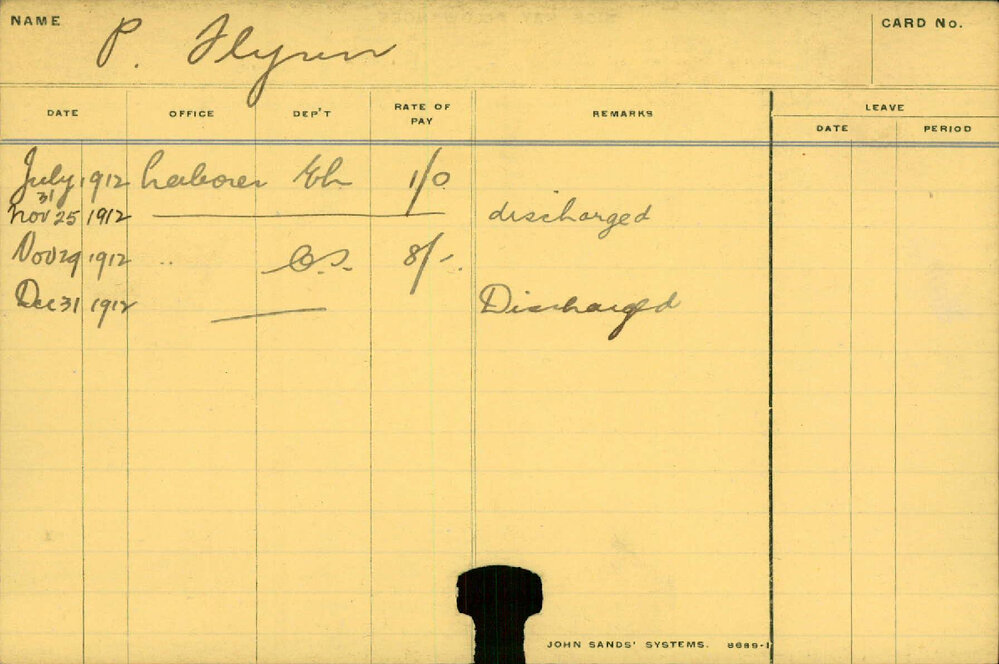 NAME P. Flynn CARD No.
DATE OFFICE DEP'T RATE OF PAY REMARKS LEAVE
DATE PERIOD
July 31 1912 Laborer 1/0
Nov 25 1912 discharged
Nov 29 1912 " 8/-.
Dec 31 1912 Discharged
JOHN SANDS' SYSTEMS. 8689-1